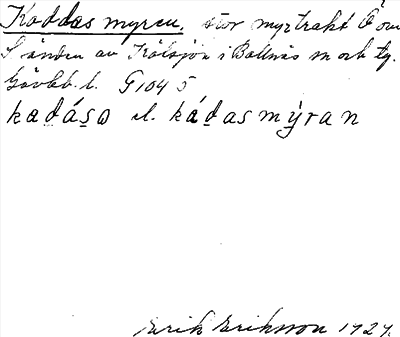 Kaddas myren, stor myrtrakt Ö om
S änden av Kölsjön i Bollnäs m och tg.
Gävleb. l. G 104 5
kadása el. kádasmýran
Erik Eriksson 1927.